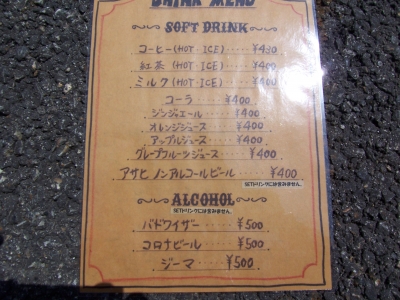 DRINK MENU
SOFT DRINK
コーヒー(HOT ICE)・・・・・¥430
紅茶 (HOT ICE)・・・・・¥400
ミルク(HOT ICE)・・・・・¥400
コーラ・・・・・¥400
ジンジャエール・・・・・¥400
オレンジジュース・・・・・¥400
アップルジュース・・・・・¥400
グレープフルーツジュース・・・・・¥400
アサヒ ノンアルコールビール・・・・・¥400
SETドリンクには含みません。
ALCOHOL
SETドリンクには含みません。
バドワイザー・・・・・¥500
コロナビール・・・・・¥500
ジーマ・・・・・¥500